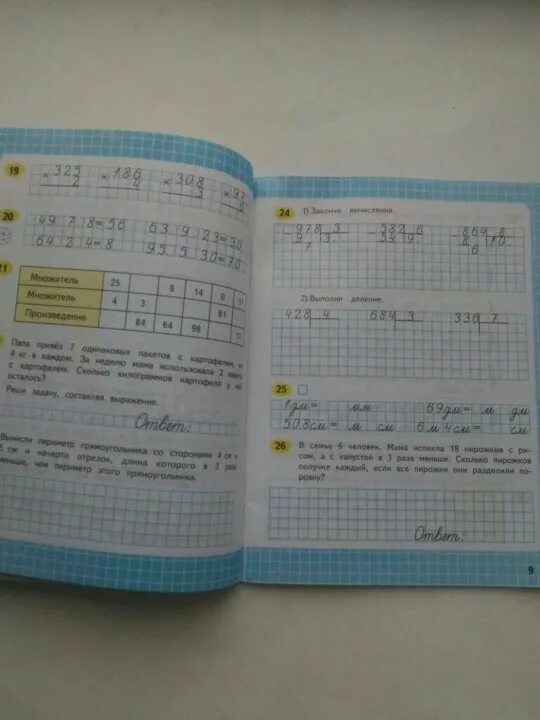 19
× 325 × 186 × 308 × 97
2 4 3 6
20
49 7 8 = 56 63 9 23 = 30
64 2 4 = 8 95 5 30 = 70
21
Множитель 25 8 14 0
Множитель 4 3 81
Произведение 84 64 98
Папа привёз 7 одинаковых пакетов с картофелем, по
4 кг в каждом. За неделю мама использовала 2 пакета
с картофелем. Сколько килограммов картофеля у неё
осталось?
Реши задачу, составляя выражение.
Ответ:
Вычисли периметр прямоугольника со сторонами 4 см и
5 см и начерти отрезок, длина которого в 3 раза
меньше, чем периметр этого прямоугольника.
24 1) Закончи вычисления.
978 3 582 6 864 8
9 3 54 9 8 10
7 6
2) Выполни деление.
428 4 684 3 336 7
25
1 дм = мм 69 дм = м дм
508 см = м см 6 м 4 см = см
26 В семье 6 человек. Мама испекла 18 пирожков с ри-
сом, а с капустой в 3 раза меньше. Сколько пирожков
получил каждый, если все пирожки они разделили по-
ровну?
Ответ:
9